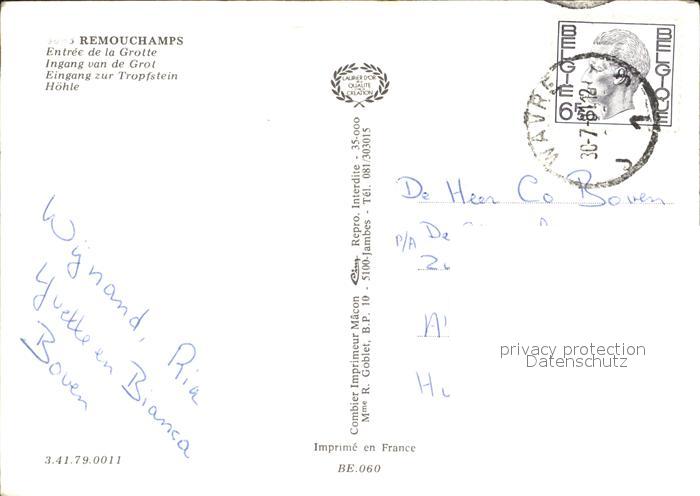 REMOUCHAMPS
Entrée de la Grotte
Ingang van de Grot
Eingang zur Tropfstein
Höhle
LAURIER D'OR
DE LA
QUALITE
CREATION
BELGIE
BELGIQUE
6F50
WAVRE
30-7-81 12
De Heer Co Boven
P/A De
privacy protection
Datenschutz
Wijnand, Ria
Yvette en Bianca
Boven
Combier Imprimeur Mâcon Repro. Interdite - 35-000
Mme R. Goblet, B.P. 10 - 5100-Jambes - Tél. 081/303015
Imprimé en France
3.41.79.0011
BE.060